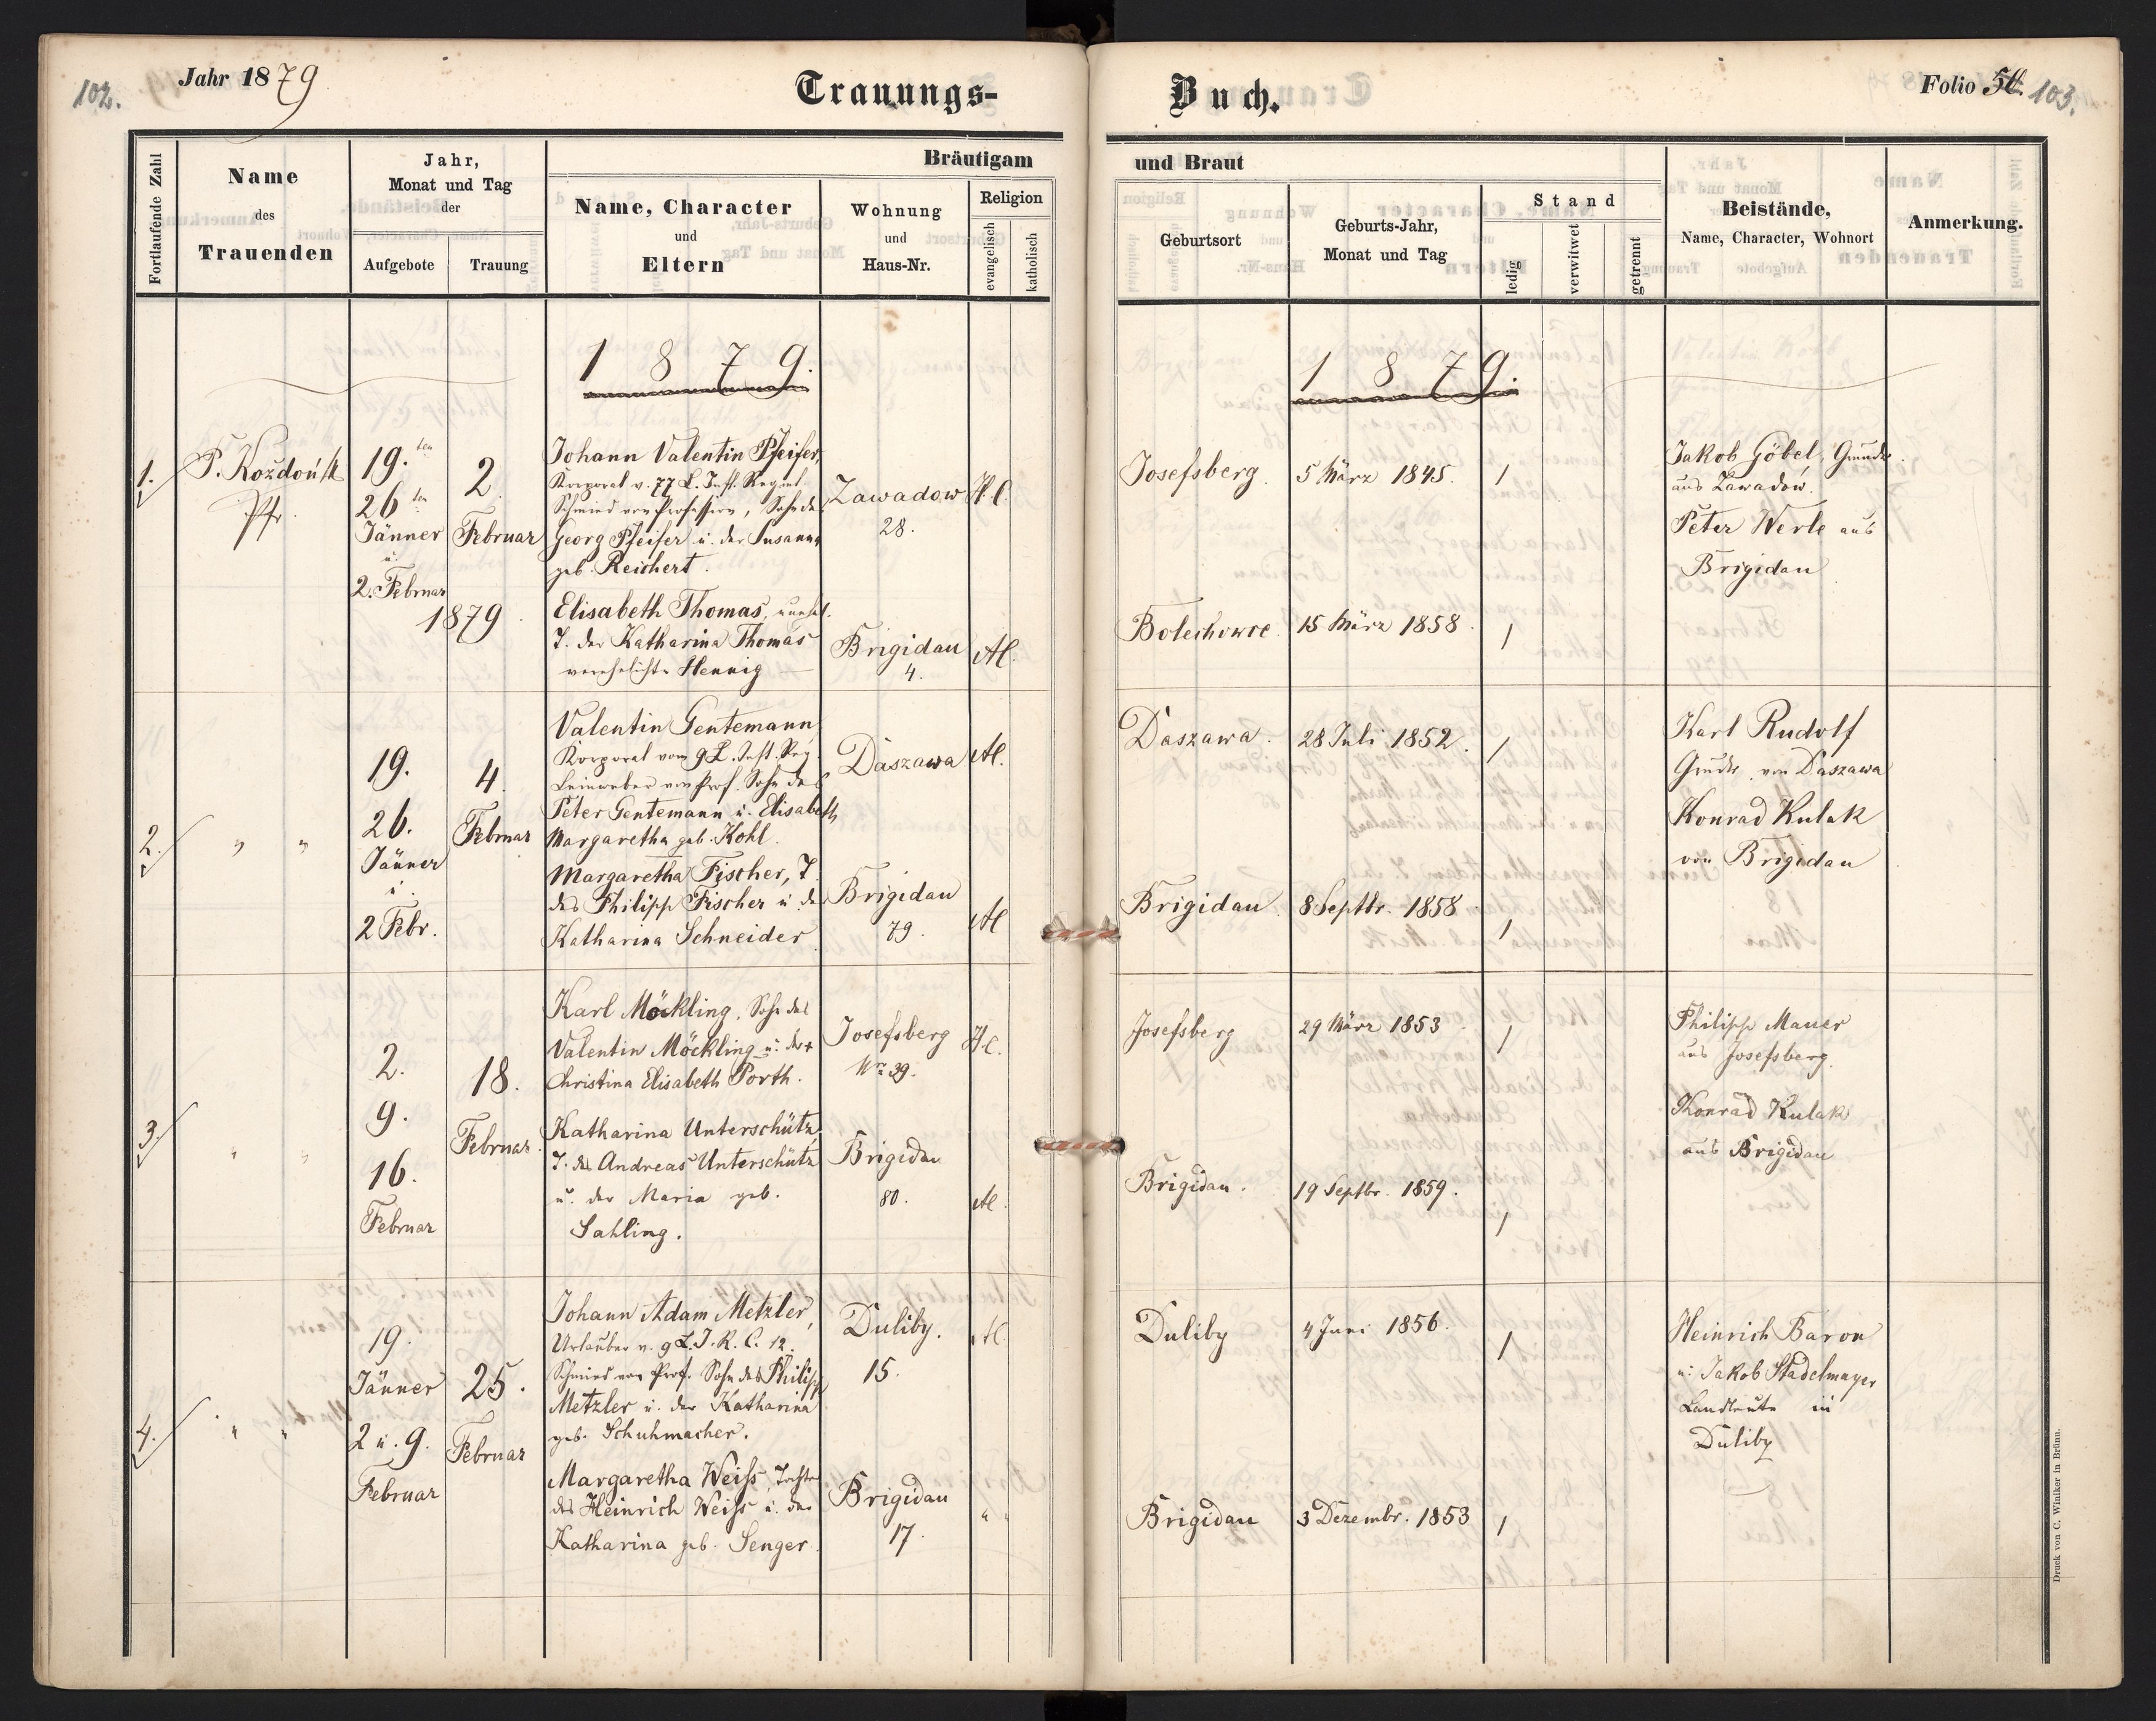 102.
Jahr 1879
Trauungs-
Buch.
Folio 50.
103.
Fortlaufende Zahl
Name
des
Trauenden
Jahr,
Monat und Tag
der
Aufgebote
Trauung
Bräutigam
Name, Character
und
Eltern
Wohnung
und
Haus-Nr.
Religion
evangelisch
katholisch
und Braut
Geburtsort
Geburts-Jahr,
Monat und Tag
Stand
ledig
verwitwet
getrennt
Beistände,
Name, Character, Wohnort
Anmerkung.
1879.
1879.
1.
P. Kozdoń
Pfr.
19.ten
26ten
Jänner
u.
2. Februar
2
Februar
1879
Johann Valentin Pfeifer,
Korporal v. 77 L. Inft. Regmt.
Schmied von Profession, Sohn des
Georg Pfeifer u. der Susanna
geb. Reichert.
Zawadow
28.
H.C.
Josefsberg.
5 März 1845.
/
Jakob Göbel, Grundr.
aus Zawadow.
Peter Werle aus
Brigidau
Elisabeth Thomas, unehel.
T. der Katharina Thomas
verehelichte Hennig
Brigidau
4.
AC.
Bolechowce
15 März 1858.
/
2.
" "
19.
26.
Jänner
u.
2 Febr.
4.
Februar
Valentin Gentemann
Korporal vom 9 L. Inft. Reg.
Leinweber von Prof. Sohn des
Peter Gentemann u. Elisabeth
Margaretha geb. Kohl.
Daszawa
AC.
Daszawa.
28 Juli 1852.
/
Karl Rudolf
Grundr. von Daszawa
Konrad Kulak
von Brigidau
Margaretha Fischer, T.
des Philipp Fischer u. d.
Katharina Schneider.
Brigidau
79.
AC
Brigidau.
8 Septbr. 1858
/
3.
" "
2.
9.
16.
Februar
18.
Februar
Karl Möckling, Sohn des
Valentin Möckling u. der +
Christina Elisabeth Porth.
Josefsberg
Nro 39.
H.C.
Josefsberg
29 März 1853
/
Philipp Mauer
aus Josefsberg.
Konrad Kulak
aus Brigidau
Katharina Unterschütz,
T. des Andreas Unterschütz
u. der Maria geb.
Sahling.
Brigidau
80.
AC.
Brigidau.
19 Septbr. 1859.
/
4.
" "
19.
Jänner
2 u. 9.
Februar
25.
Februar
Johann Adam Metzler,
Urlauber v. 9 L.I.R. C. 12.
Schmied von Prof. Sohn des Philipp
Metzler u. der Katharina
geb. Schuhmacher.
Duliby.
15.
AC.
Duliby
4 Juni 1856.
/
Heinrich Baron
u. Jakob Stadelmayer
Landleute in
Duliby
Margaretha Weiss, Tochter
des Heinrich Weiss u. der
Katharina geb. Senger.
Brigidau
17.
" "
Brigidau
3 Dezembr. 1853
/
Druck von C. Winiker in Brünn.